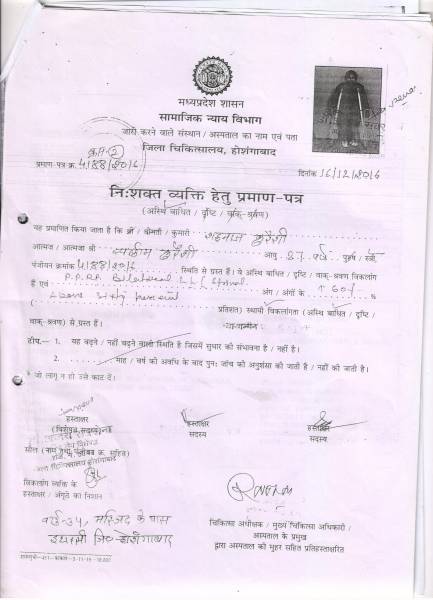 मध्यप्रदेश शासन
सामाजिक न्याय विभाग
जारी करने वाले संस्थान / अस्पताल का नाम एवं पता
जिला चिकित्सालय, होशंगाबाद
प्रमाण-पत्र क्र. 4188/2016
दिनांक 16/12/2016
निःशक्त व्यक्ति हेतु प्रमाण-पत्र
(अस्थि बाधित / दृष्टि / वाक्-श्रवण)
यह प्रमाणित किया जाता है कि श्री / श्रीमती / कुमारी शहनाज कुरैशी
आत्मज / आत्मजा श्री सलीम कुरैशी आयु वर्ष, पुरुष / स्त्री,
पंजीयन क्रमांक 4188/2016 स्थिति से ग्रस्त हैं। वे अस्थि बाधित / दृष्टि / वाक्-श्रवण विकलांग
हैं एवं P.P.R.P. Bilateral अंग / अंगों के 60 %
( sixty percent प्रतिशत) स्थायी विकलांगता (अस्थि बाधित / दृष्टि /
वाक्-श्रवण) से ग्रस्त हैं।
टीप.- 1. यह बढ़ने / नहीं बढ़ने वाली स्थिति है जिसमें सुधार की संभावना है / नहीं है।
2. माह / वर्ष की अवधि के बाद पुनः जाँच की अनुशंसा की जाती है / नहीं की जाती है।
जो लागू न हो उसे काट दें।
हस्ताक्षर
हस्ताक्षर
सदस्य
हस्ताक्षर
सदस्य
सील (नाम
जिला चिकित्सालय होशंगाबाद
विकलांग व्यक्ति के
हस्ताक्षर / अंगूठे का निशान
वार्ड-34, मस्जिद के पास
इटारसी जि०-होशंगाबाद
चिकित्सा अधीक्षक / मुख्य चिकित्सा अधिकारी /
अस्पताल के प्रमुख
द्वारा अस्पताल की मुहर सहित प्रतिहस्ताक्षरित